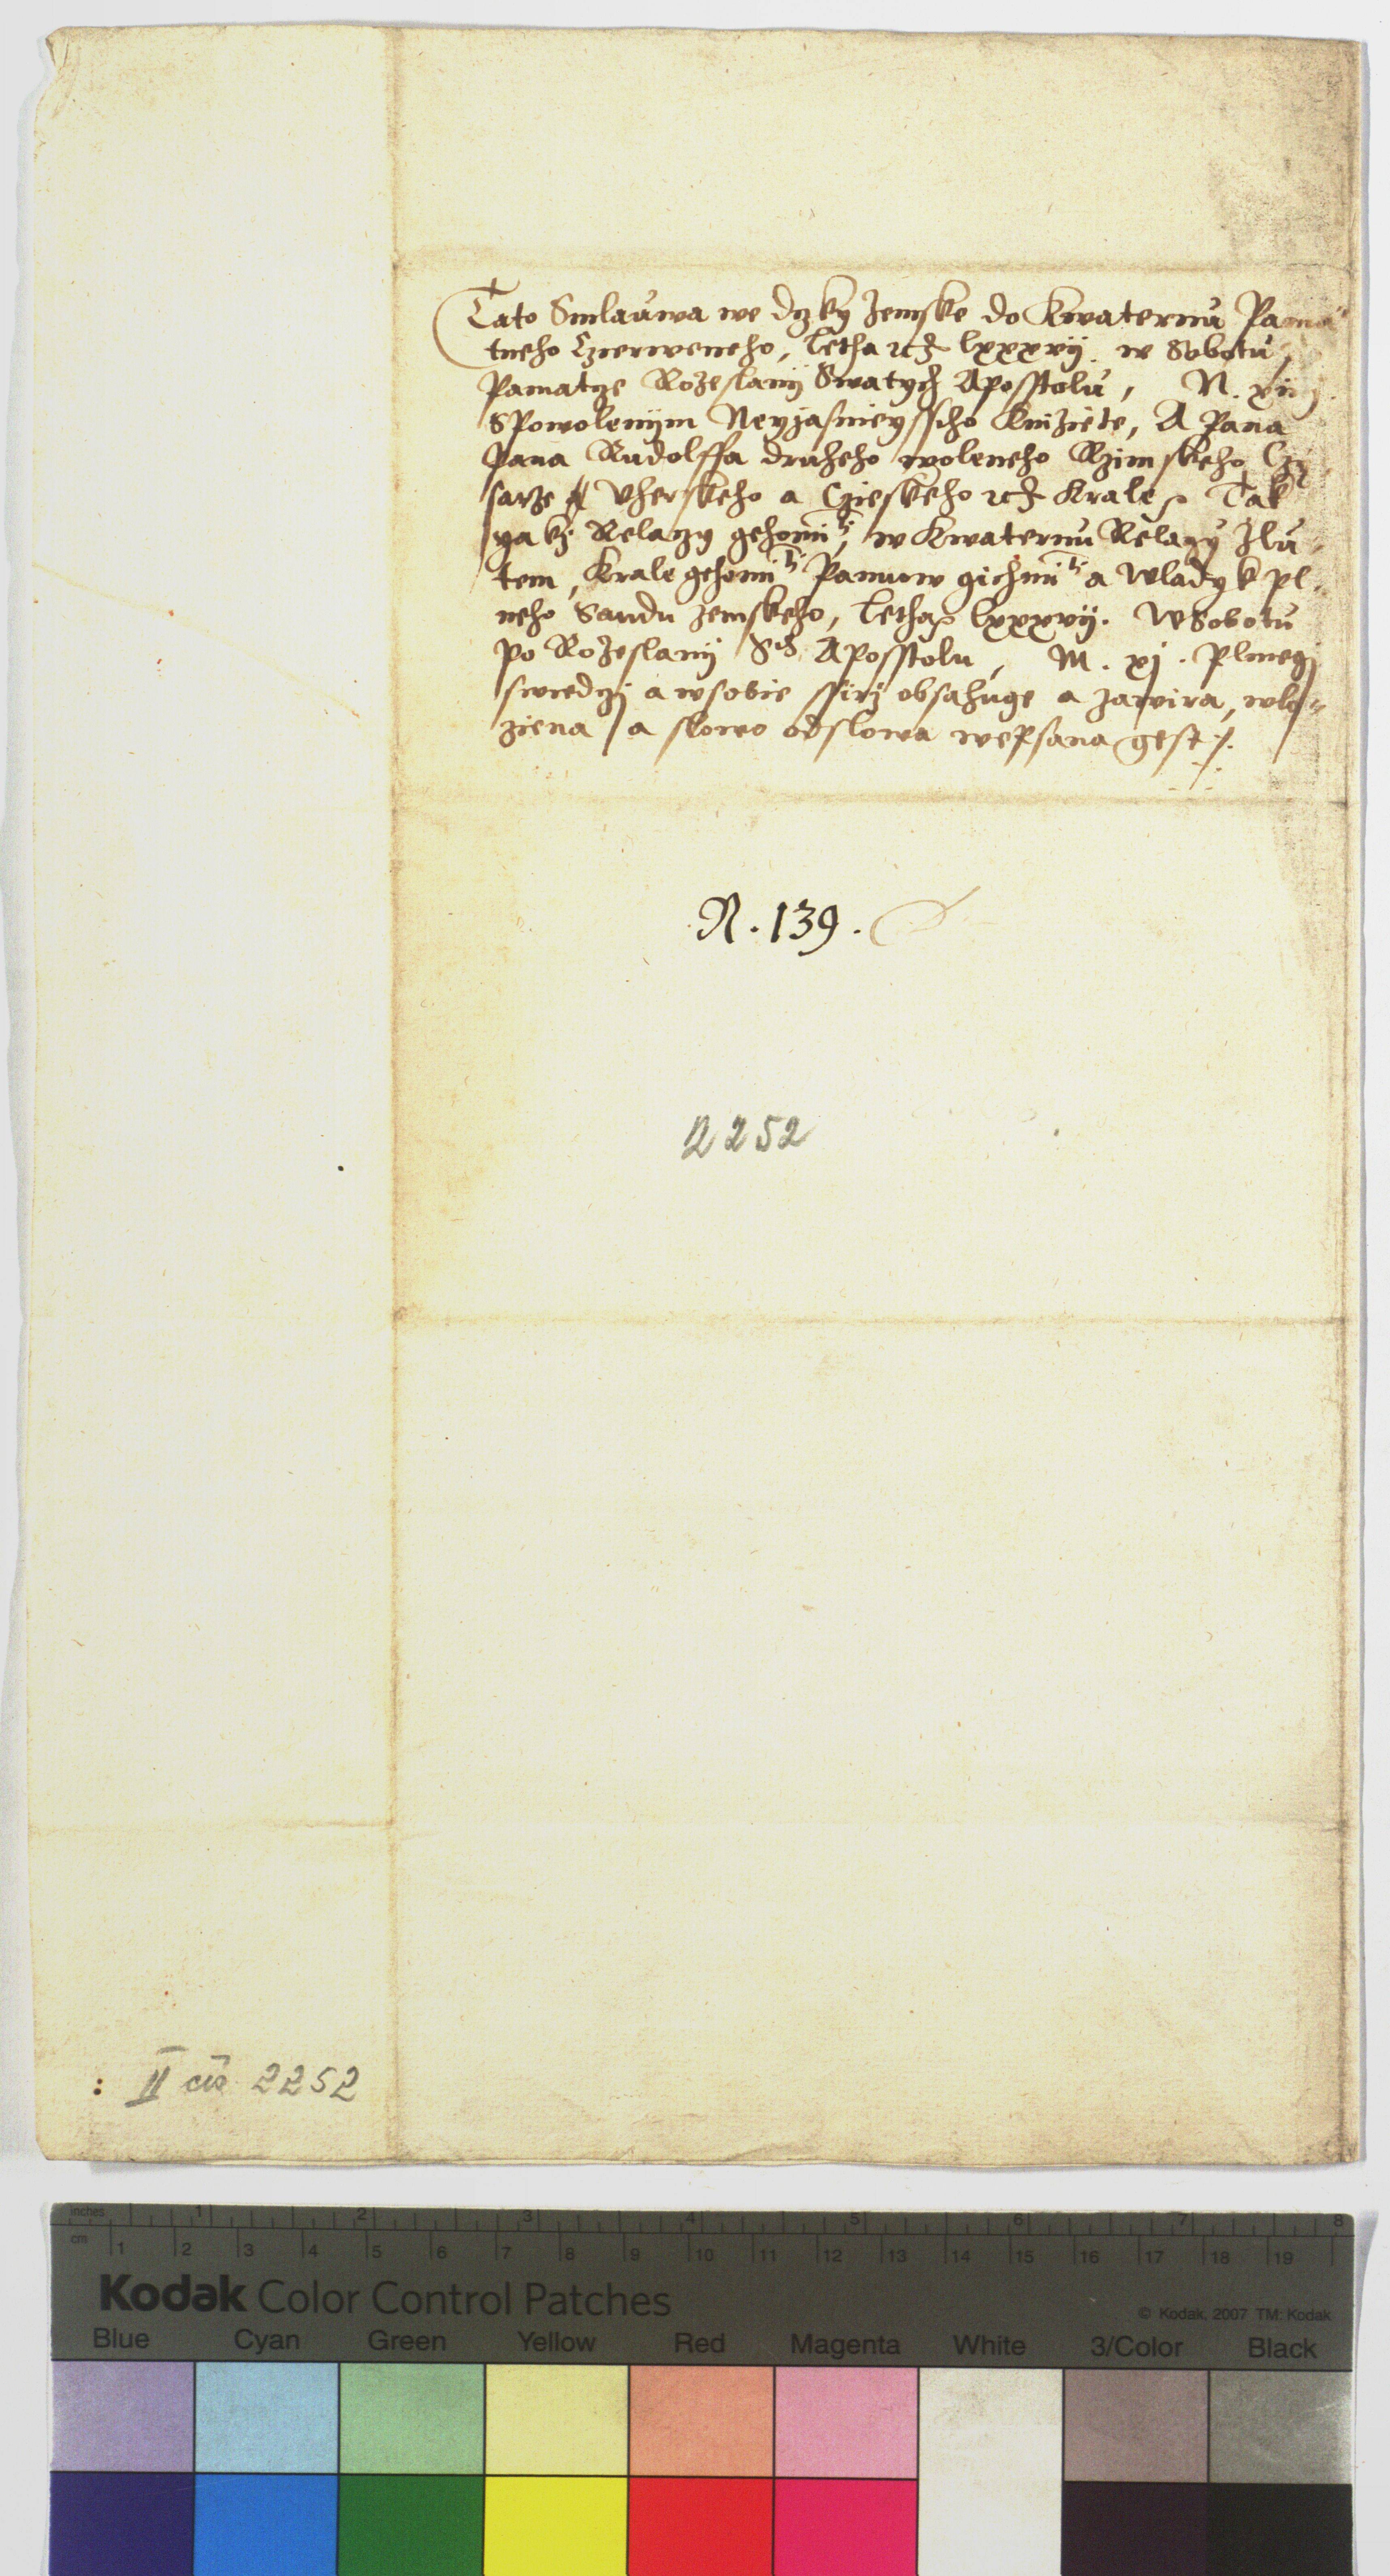 Tato Smlauwa we dczky Zemske do Kwaternu Pama
tneho Czerweneho, Letha ꝛcꝭ lxxxvij. w Sobotu
Pamatcze Rozeslanij Swatych Aposstolu, N. xiij.
S Powolenijm Neyjasnieyssiho Knižiete, A Pana
Pana Rudolffa druheho woleneho Rzimskeho Czy
sarze A Uherskeho a Czieskeho ꝛcꝭ Krale Tak
yakž Relaczy gehomti, w Kwaternu Relaczy Žlu-
tem, Krale gehomti Panuow gichmti a Wladyk pl-
neho Saudu Zemskeho, Letha lxxxvij. W Sobotu
po Rozeslanij Sch Aposstolu, M. xj. plniegi
swiedczj a w sobie ssirz obsahuge a zawira, wlo-
ziena / a slowo od slowa wepsana gest ./.
N. 139.
2252
: II cis 2252
inches 1 2 3 4 5 6 7 8
cm 1 2 3 4 5 6 7 8 9 10 11 12 13 14 15 16 17 18 19
Kodak Color Control Patches
© Kodak, 2007 TM: Kodak
Blue Cyan Green Yellow Red Magenta White 3/Color Black